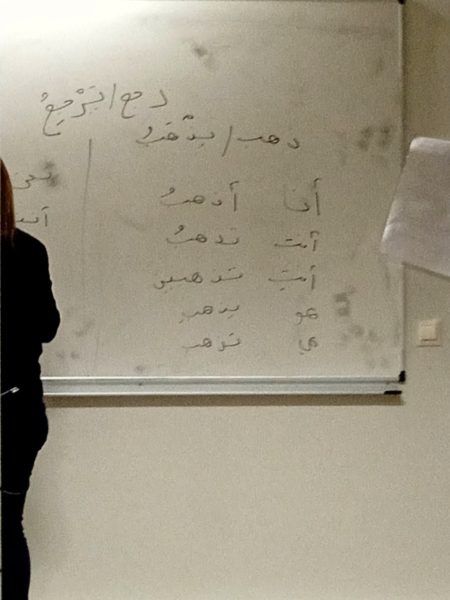 رجع / يَرْجِعُ
ذهب / يذْهَبُ
أنا أذهبُ
أنت تذهبُ
أنتِ تذهبين
هو يذهب
هي تذهب
نحن